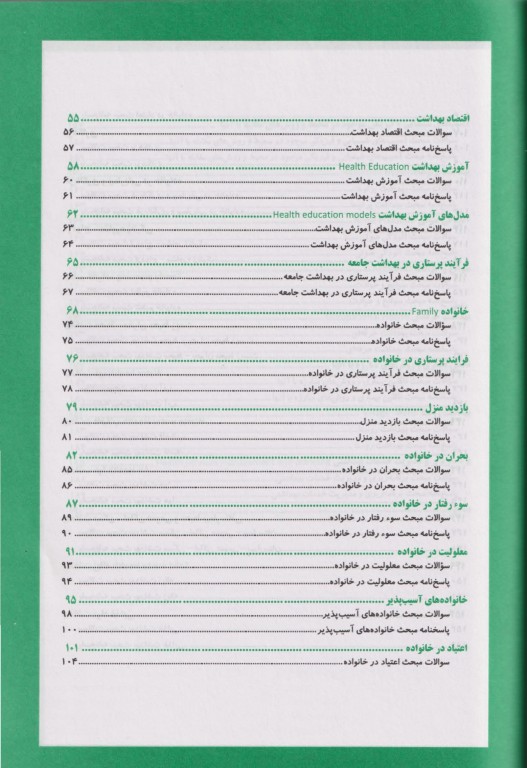 اقتصاد بهداشت ........ ۵۵
سوالات مبحث اقتصاد بهداشت ........ ۵۶
پاسخ‌نامه مبحث اقتصاد بهداشت ........ ۵۷
آموزش بهداشت Health Education ........ ۵۸
سوالات مبحث آموزش بهداشت ........ ۶۰
پاسخ‌نامه مبحث آموزش بهداشت ........ ۶۱
مدل‌های آموزش بهداشت Health education models ........ ۶۲
سوالات مبحث مدل‌های آموزش بهداشت ........ ۶۳
پاسخ‌نامه مبحث مدل‌های آموزش بهداشت ........ ۶۴
فرآیند پرستاری در بهداشت جامعه ........ ۶۵
سوالات مبحث فرآیند پرستاری در بهداشت جامعه ........ ۶۶
پاسخ‌نامه مبحث فرآیند پرستاری در بهداشت جامعه ........ ۶۷
خانواده Family ........ ۶۸
سؤالات مبحث خانواده ........ ۷۴
پاسخ‌نامه مبحث خانواده ........ ۷۵
فرایند پرستاری در خانواده ........ ۷۶
سوالات مبحث فرآیند پرستاری در خانواده ........ ۷۷
پاسخ‌نامه مبحث فرآیند پرستاری در خانواده ........ ۷۸
بازدید منزل ........ ۷۹
سوالات مبحث بازدید منزل ........ ۸۰
پاسخ‌نامه مبحث بازدید منزل ........ ۸۱
بحران در خانواده ........ ۸۲
سوالات مبحث بحران در خانواده ........ ۸۵
پاسخ‌نامه مبحث بحران در خانواده ........ ۸۶
سوء رفتار در خانواده ........ ۸۷
سوالات مبحث سوء رفتار در خانواده ........ ۸۹
پاسخ‌نامه مبحث سوء رفتار در خانواده ........ ۹۰
معلولیت در خانواده ........ ۹۱
سؤالات مبحث معلولیت در خانواده ........ ۹۳
پاسخ‌نامه مبحث معلولیت در خانواده ........ ۹۴
خانواده‌های آسیب‌پذیر ........ ۹۵
سوالات مبحث خانواده‌های آسیب‌پذیر ........ ۹۸
پاسخنامه مبحث خانواده‌های آسیب‌پذیر ........ ۱۰۰
اعتیاد در خانواده ........ ۱۰۱
سوالات مبحث اعتیاد در خانواده ........ ۱۰۴